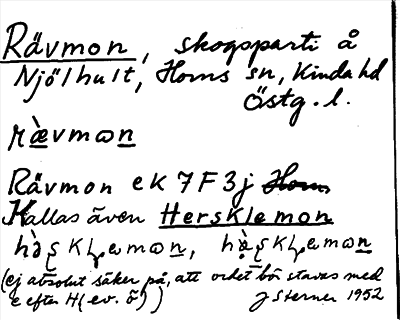 Rävmon, skogsparti å
Njölhult, Horns sn, Kinda hd
Östg. l.
rὰvmωn
Rävmon ek 7F3j Horns
Kallas även Hersklemon
(ej absolut säker på, att ordet bör stavas med
e efter H (ev. ö))
J Sterner 1952